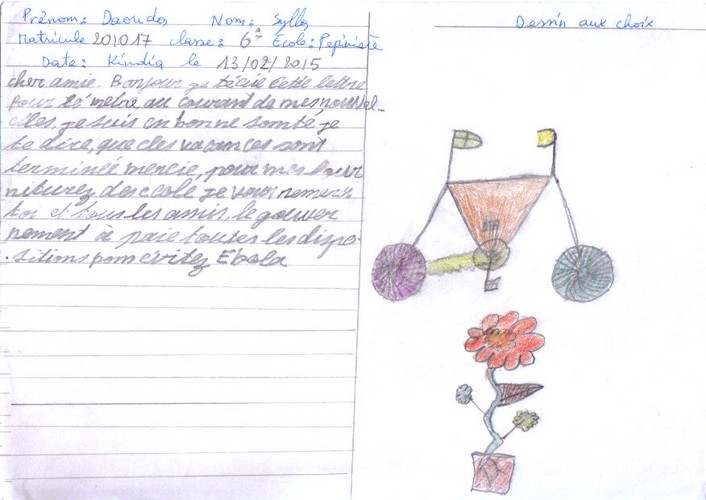 Prénom: Daouda Nom: Sylla
Matricule 201017 classe: 6è Ecole: Pepinière
Date: Kindia le 13/02/2015
cher amie. Bonjour je técrie cette lettre
pour té métre au courant de mes nouvel-
elles, je suis en bonne santé, je
ta dire, que les vacances sont
terminée mercie, pour mes
niturez d'ecole je vous remerci
toi et tous les amis, le gouver
nement à paie toutes les dispo
sitions pour évitez Ebola
Dessin aux choix